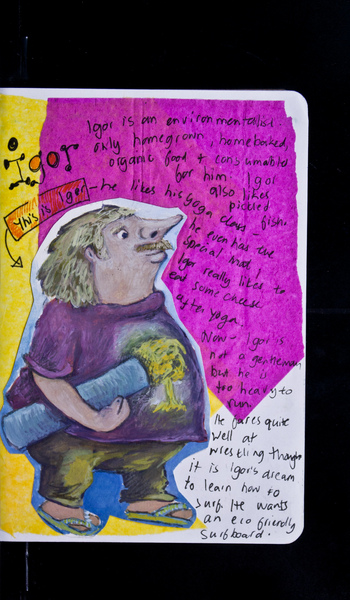 igor
this is Igor
Igor is an environmentalist.
only homegrown, homebaked,
organic food + consumables
for him. Igor
also likes
pickled
fish.
he likes his yoga class
he even has the
special mat!
Igor really likes to
eat some cheese
after yoga.
Now - Igor is
not a gentleman
but he is
too heavy to
run.
He fares quite
well at
wrestling though
it is Igor's dream
to learn how to
surf. He wants
an eco friendly
surfboard.